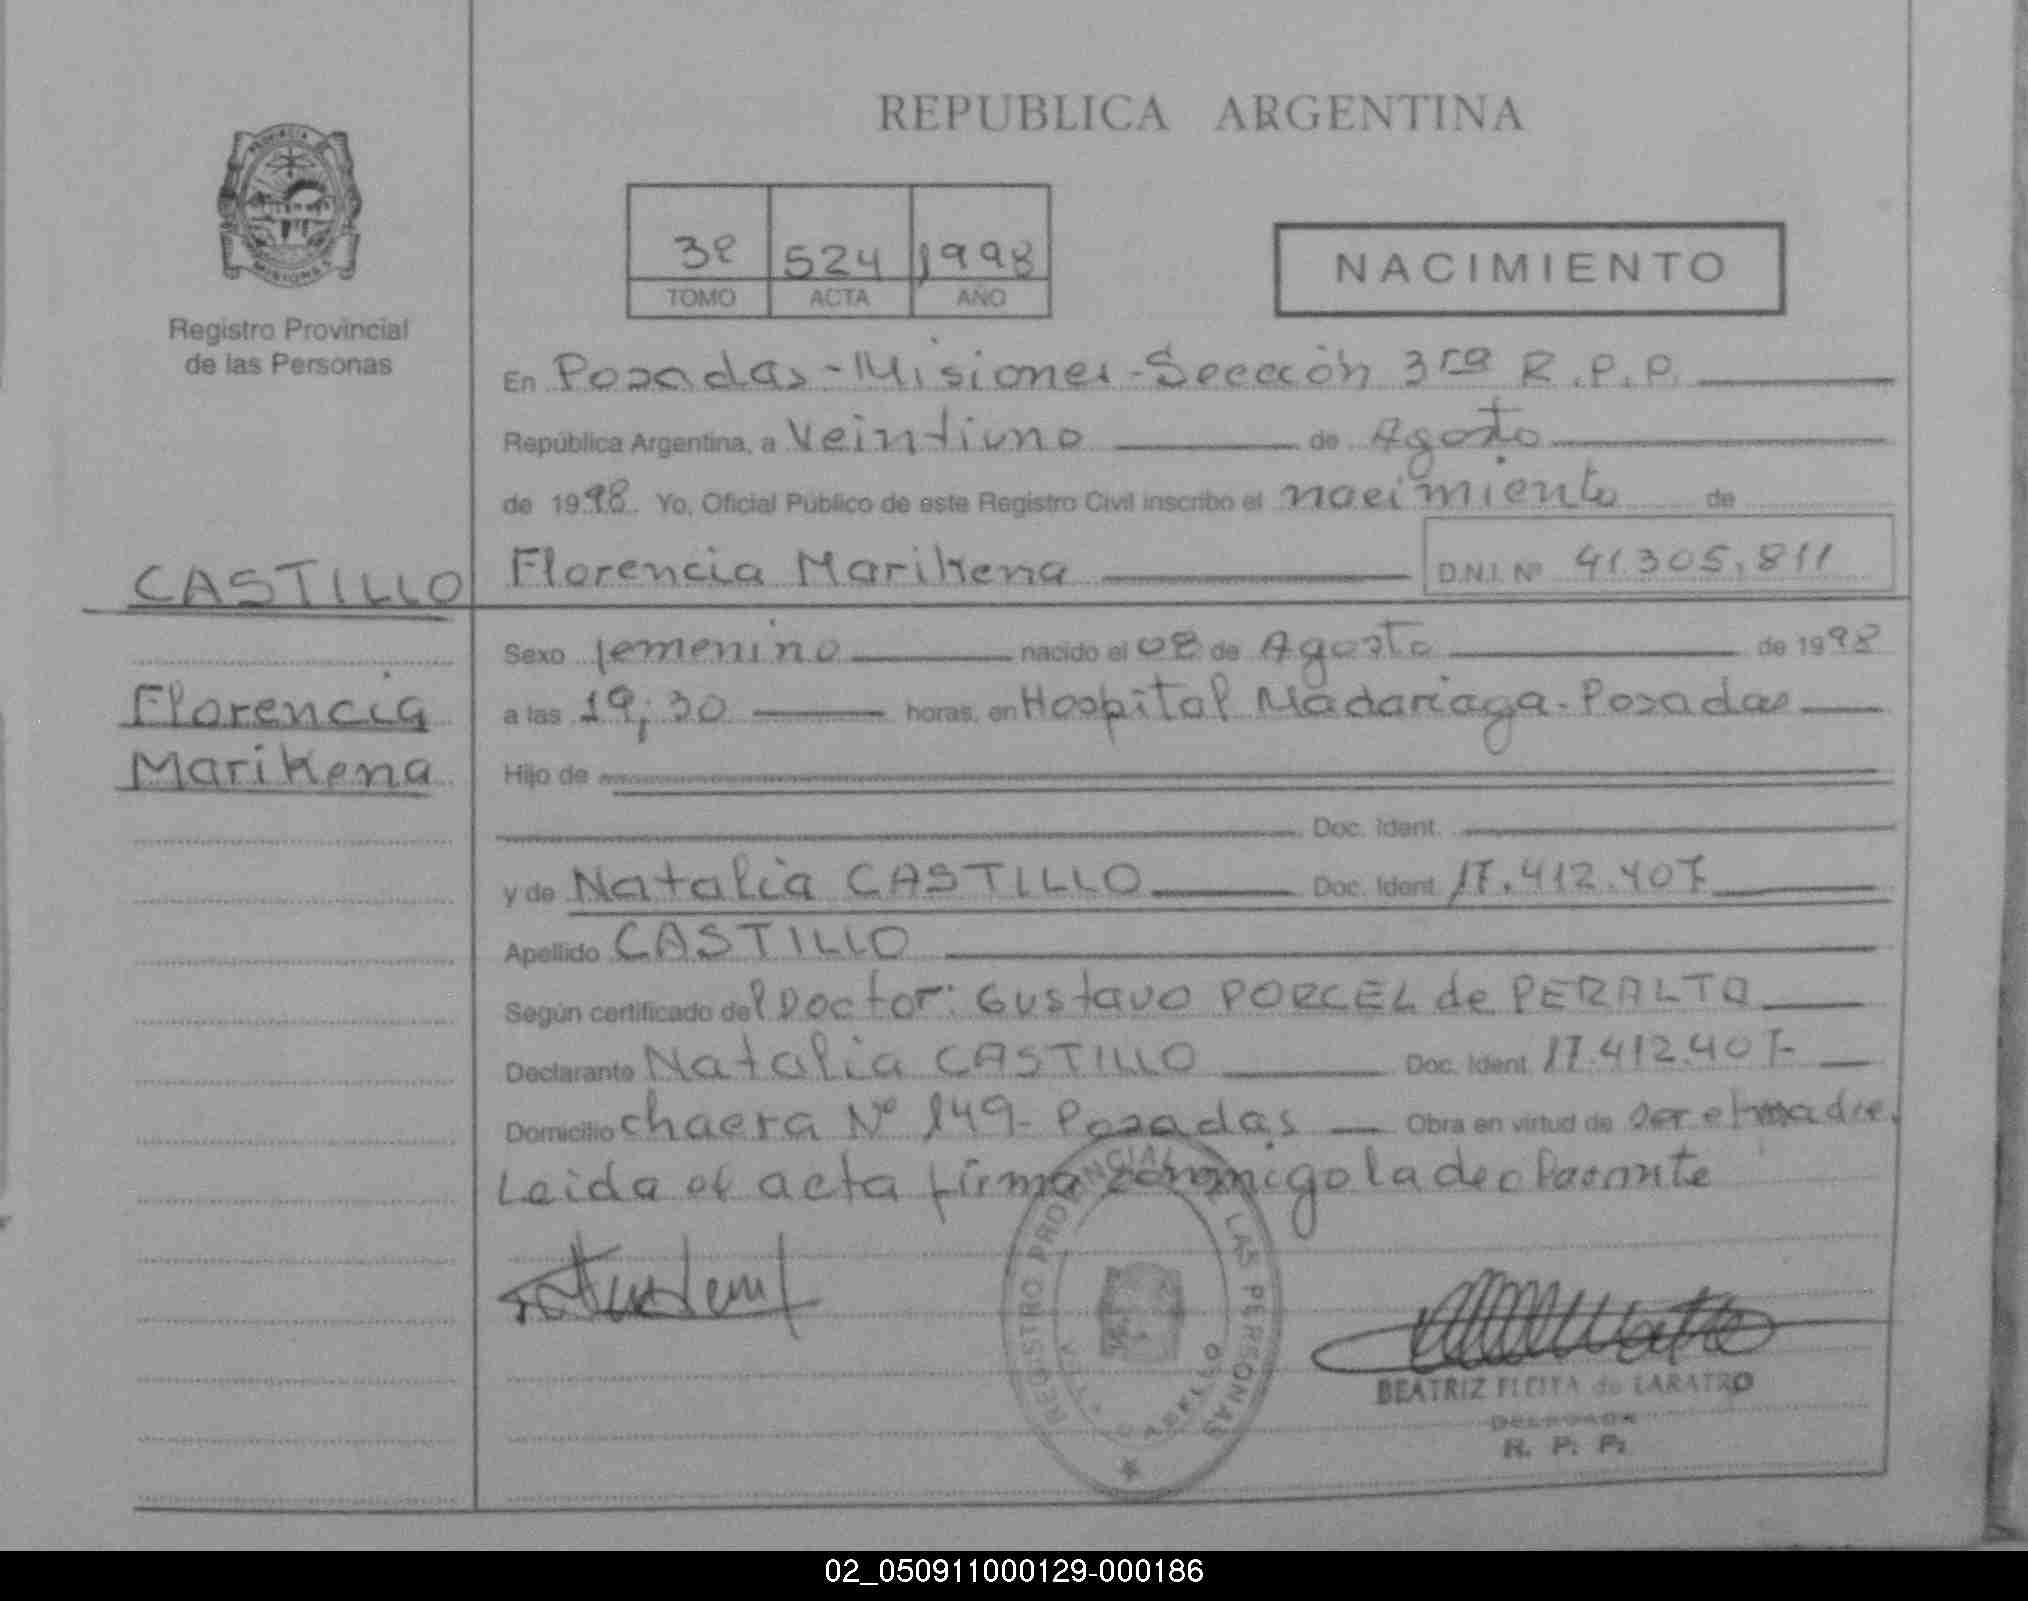 REPUBLICA ARGENTINA
3º 524 1998
TOMO ACTA AÑO
NACIMIENTO
PROVINCIA
MISIONES
Registro Provincial
de las Personas
En Posadas-Misiones-Sección 3ra R.P.P.
República Argentina, a Veintiuno de Agosto
de 1998. Yo, Oficial Público de este Registro Civil inscribo el nacimiento de
Florencia Marikena D.N.I. Nº 41.305.811
CASTILLO
Florencia
Marikena
Sexo femenino nacido el 08 de Agosto de 1998
a las 19;30 horas, en Hospital Madariaga-Posadas
Hijo de
Doc. Ident.
y de Natalia CASTILLO Doc. Ident. 17.412.407
Apellido CASTILLO
Según certificado del Doctor: Gustavo PORCEL de PERALTA
Declarante Natalia CASTILLO Doc. Ident. 17.412.407-
Domicilio chacra Nº 149- Posadas Obra en virtud de ser el madre.
Leida el acta firma conmigo la declarante
REGISTRO PROVINCIAL LAS PERSONAS
BEATRIZ FLEITA de LARATRO
DELEGADA
R. P. P.
02_050911000129-000186